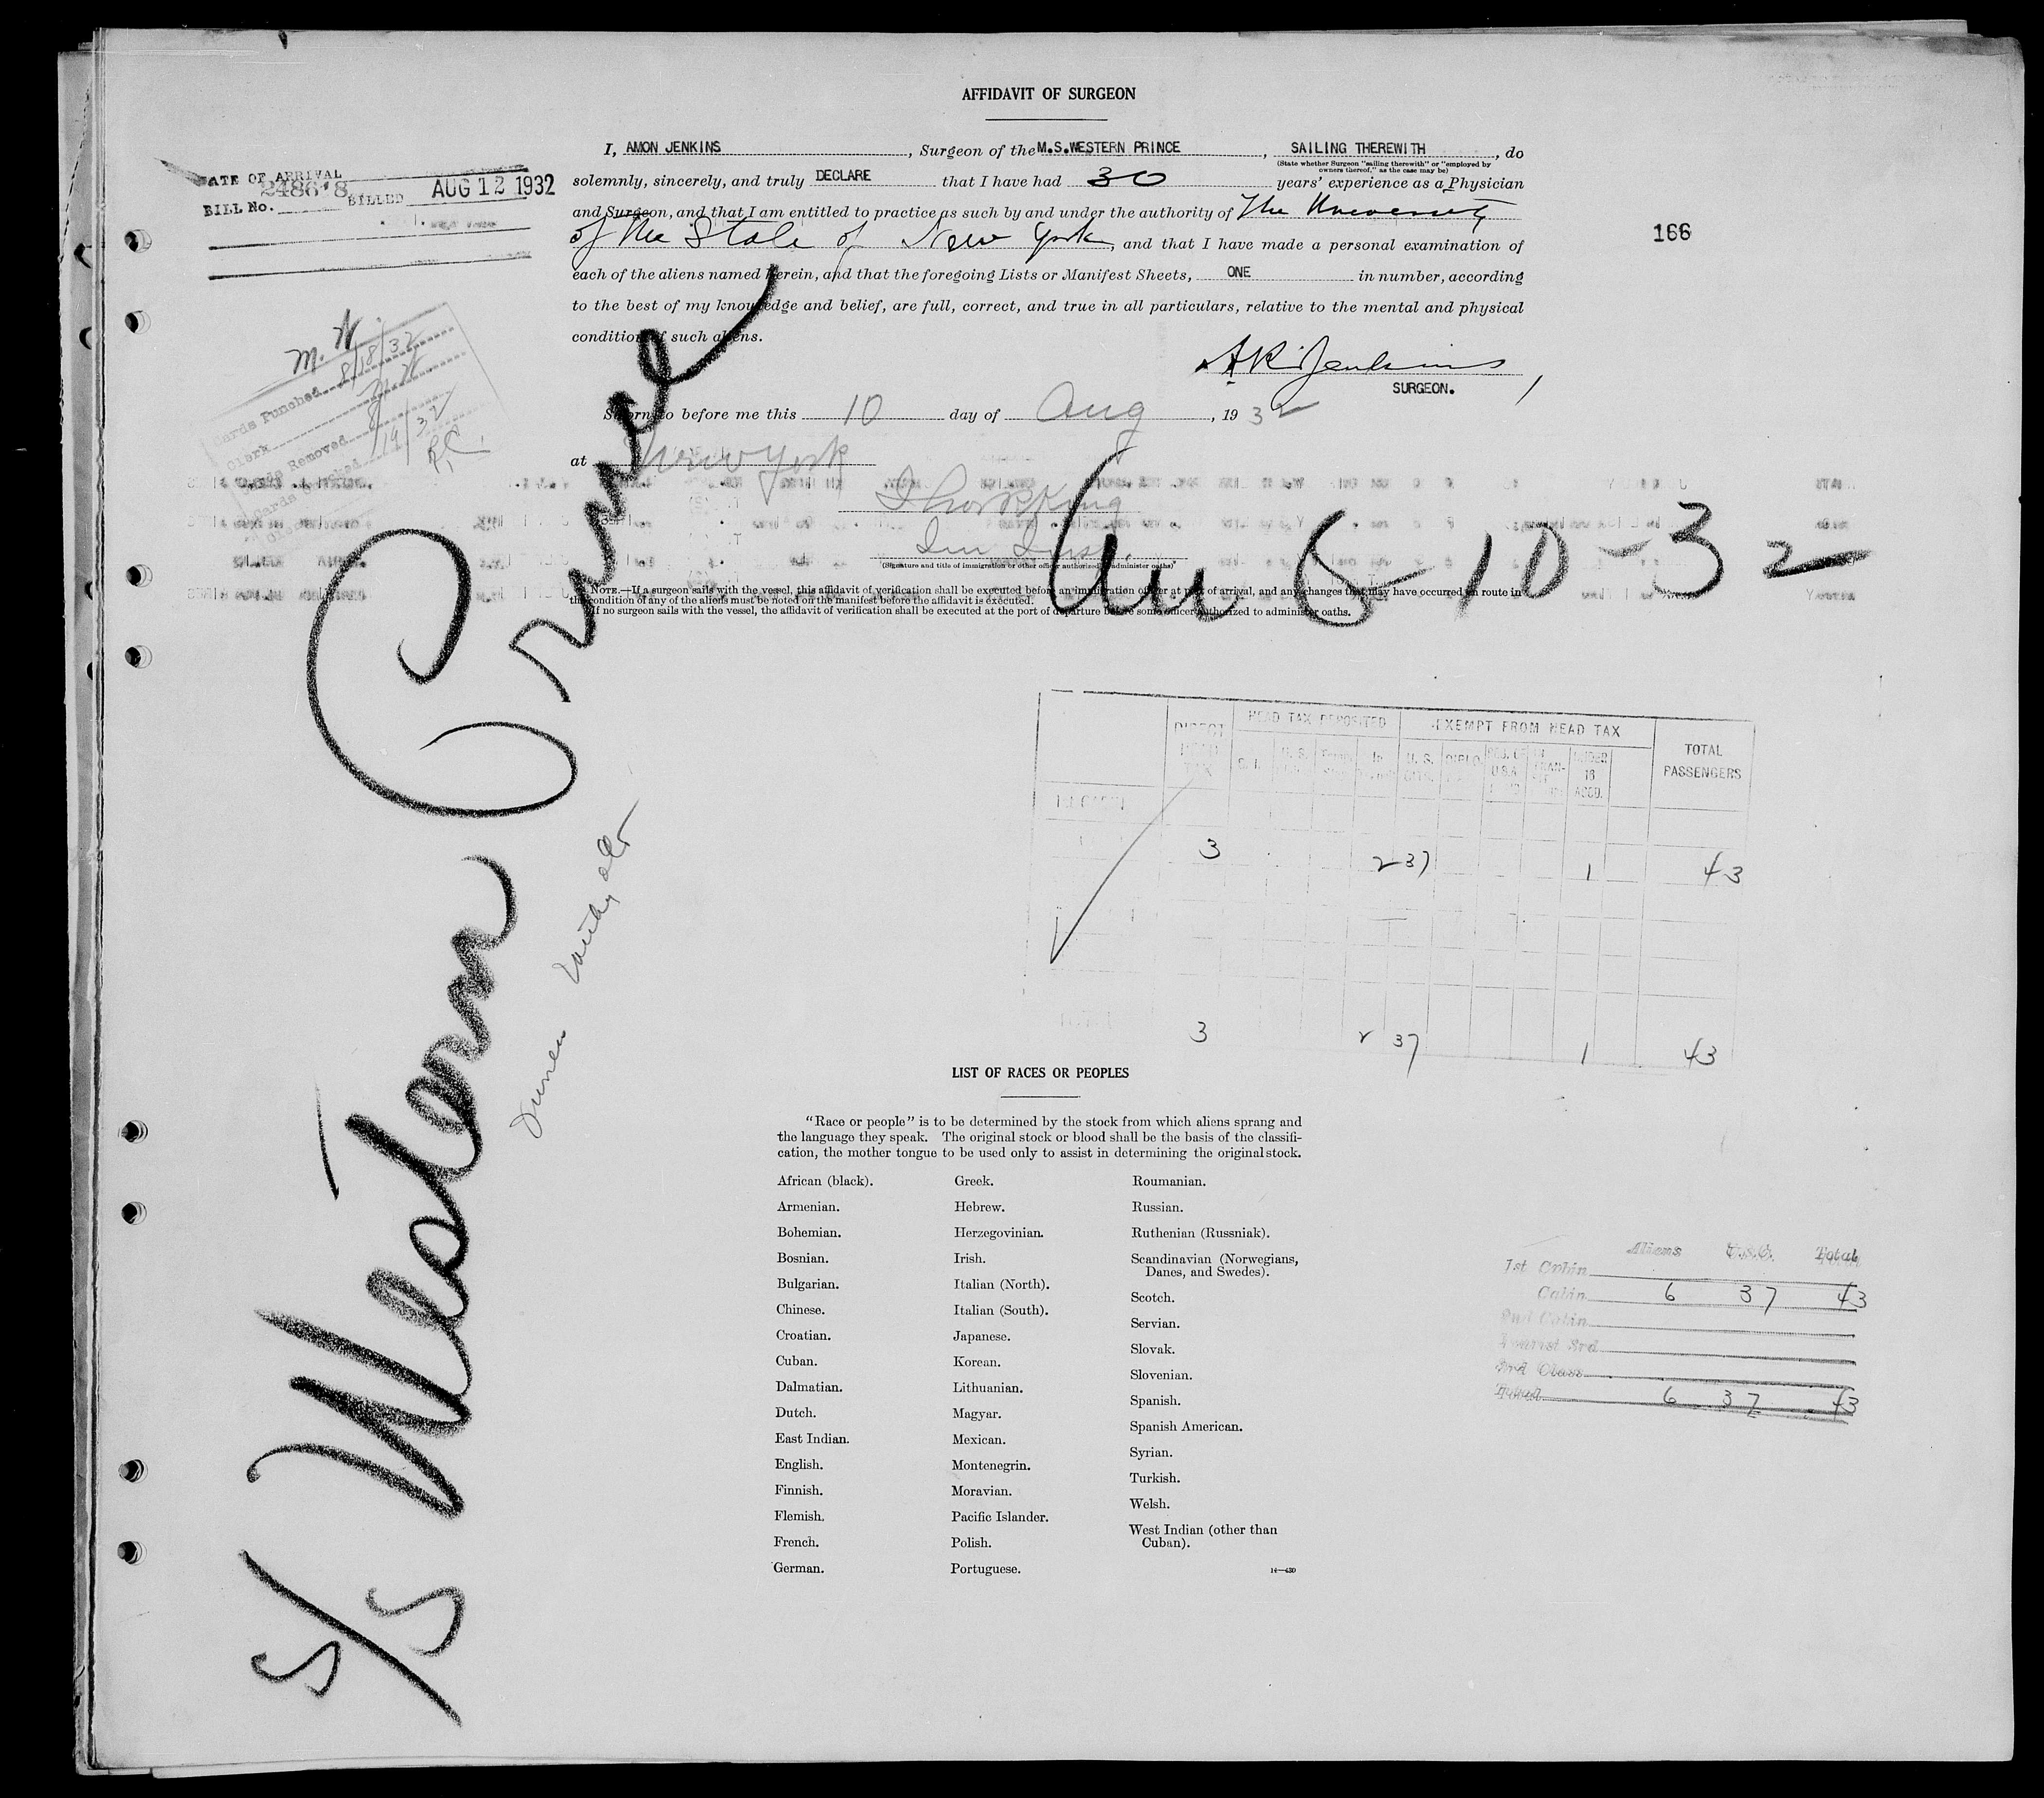 AFFIDAVIT OF SURGEON
I, AMON JENKINS, Surgeon of the M.S.WESTERN PRINCE, SAILING THEREWITH, do
(State whether Surgeon "sailing therewith" or "employed by
owners thereof," as the case may be)
solemnly, sincerely, and truly DECLARE that I have had 30 years' experience as a Physician
and Surgeon, and that I am entitled to practice as such by and under the authority of The University
of the State of New York, and that I have made a personal examination of
each of the aliens named herein, and that the foregoing Lists or Manifest Sheets, ONE in number, according
to the best of my knowledge and belief, are full, correct, and true in all particulars, relative to the mental and physical
condition of such aliens.
A R Jenkins
SURGEON.
Sworn to before me this 10 day of Aug, 1932
at New York
Imm Insp.
(Signature and title of immigration or other officer authorized to administer oaths)
NOTE.—If a surgeon sails with the vessel, this affidavit of verification shall be executed before an immigration officer at port of arrival, and any changes that may have occurred en route in
the condition of any of the aliens must be noted on the manifest before the affidavit is executed.
If no surgeon sails with the vessel, the affidavit of verification shall be executed at the port of departure before some officer authorized to administer oaths.
DATE OF ARRIVAL
248618
BILL No. BILLED AUG 12 1932
166
M. W.
Cards Punched 8/18/32
Clerk M. W.
Cards Removed 8/19/32
Cards Checked R.C.
Clerk
S/S Western Prince
10-32
HEAD TAX DEPOSITED EXEMPT FROM HEAD TAX
DIRECT HEAD TAX U. S. In U. S. CITS. DIPLO. POS. OF U.S.A. IN TRAN- UNDER 16 ACCD. TOTAL PASSENGERS
3 2 37 1 43
3 2 37 1 43
LIST OF RACES OR PEOPLES
"Race or people" is to be determined by the stock from which aliens sprang and
the language they speak. The original stock or blood shall be the basis of the classifi-
cation, the mother tongue to be used only to assist in determining the original stock.
African (black).
Armenian.
Bohemian.
Bosnian.
Bulgarian.
Chinese.
Croatian.
Cuban.
Dalmatian.
Dutch.
East Indian.
English.
Finnish.
Flemish.
French.
German.
Greek.
Hebrew.
Herzegovinian.
Irish.
Italian (North).
Italian (South).
Japanese.
Korean.
Lithuanian.
Magyar.
Mexican.
Montenegrin.
Moravian.
Pacific Islander.
Polish.
Portuguese.
Roumanian.
Russian.
Ruthenian (Russniak).
Scandinavian (Norwegians,
Danes, and Swedes).
Scotch.
Servian.
Slovak.
Slovenian.
Spanish.
Spanish American.
Syrian.
Turkish.
Welsh.
West Indian (other than
Cuban).
14—430
Aliens U.S.C. Total
1st Cabin
Cabin 6 37 43
2nd Cabin
Tourist 3rd
3rd Class
Total 6 37 43